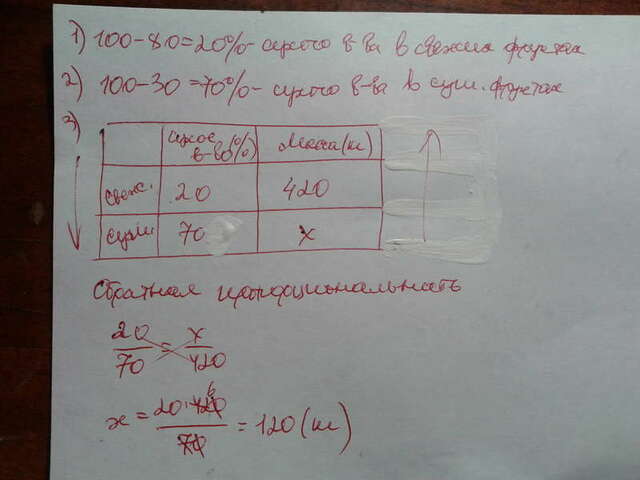 1) 100-80=20%- сухого в-ва в свежих фруктах
2) 100-30=70%- сухого в-ва в суш. фруктах
3)
сухое в-во(%) Масса(кг)
свеж. 20 420
суш. 70 x
Обратная пропорциональность
20/70 = x/420
x = 20·420/70 = 120 (кг)
6